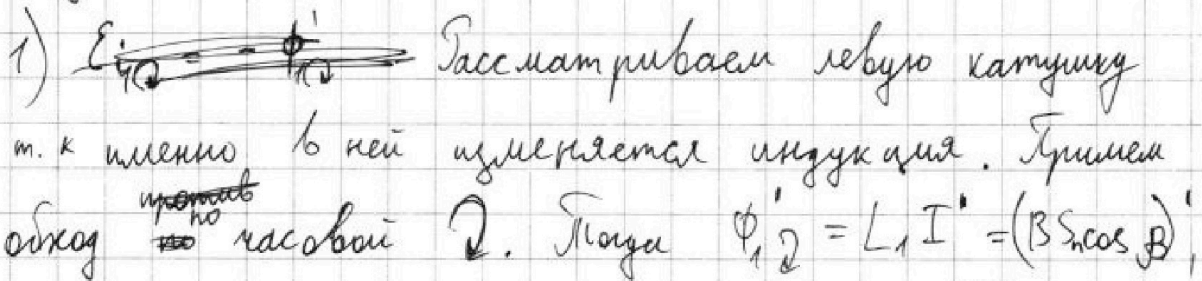 1) Рассматриваем левую катушку
т.к именно в ней изменяется индукция. Примем
обход по часовой ⤵. Тогда Φ₁'⤵ = L₁I' = (BSₙcosβ)',